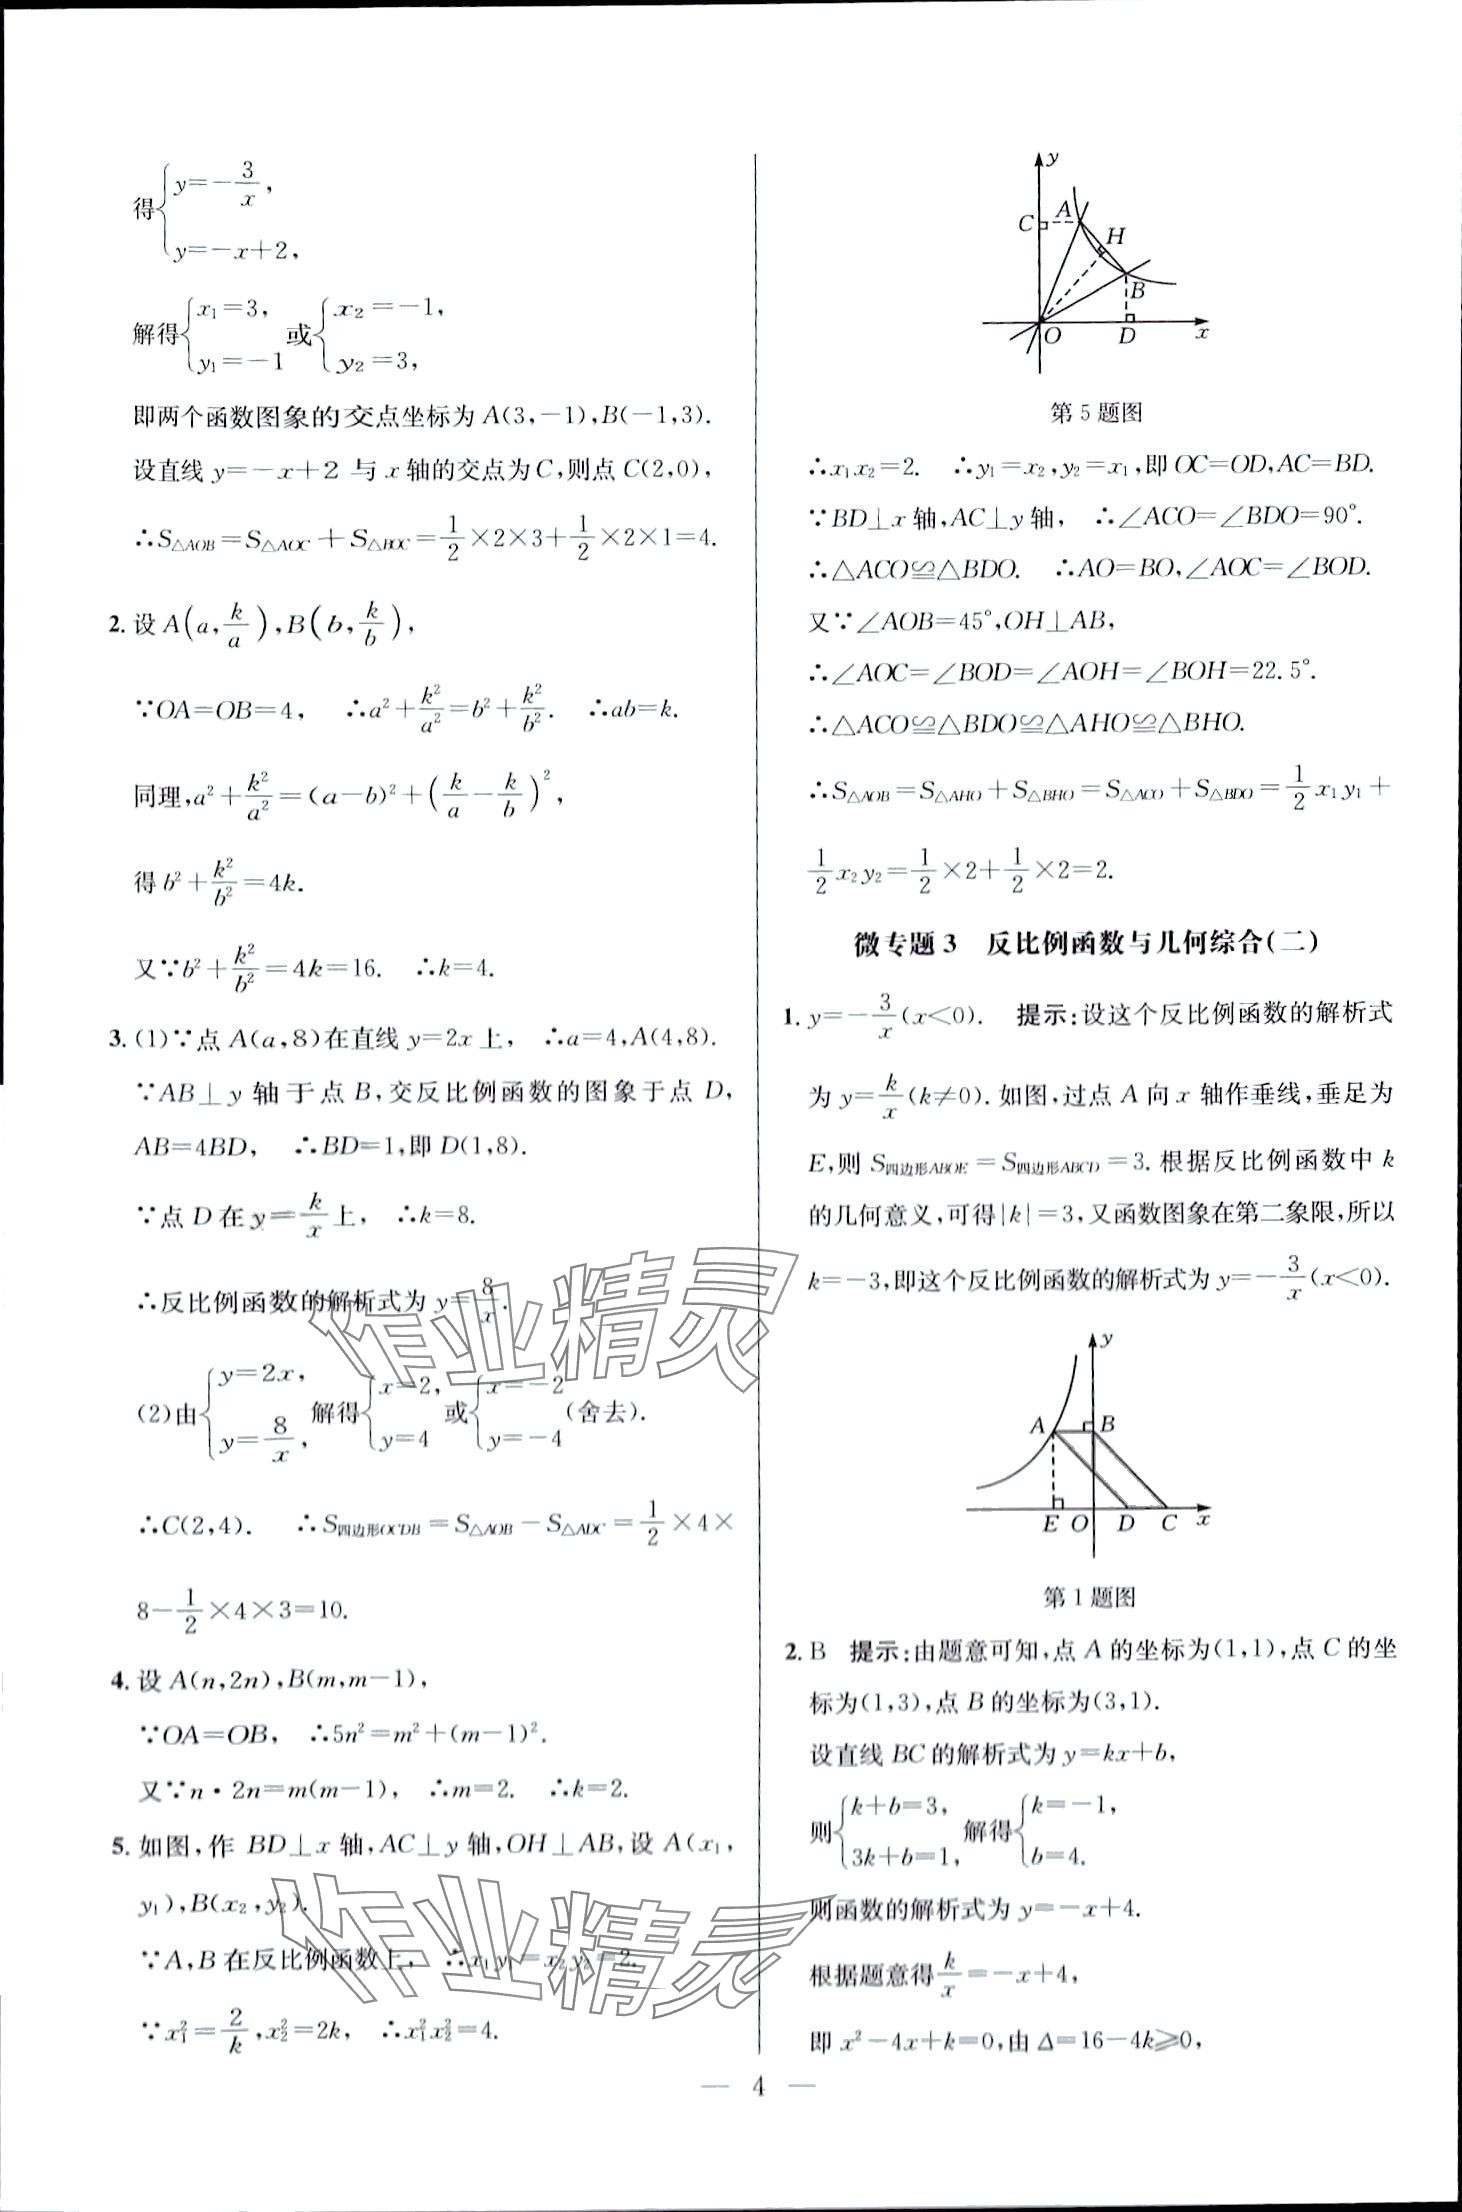 得{y=-3/x,
y=-x+2,
解得{x₁=3, y₁=-1 或{x₂=-1, y₂=3,
即两个函数图象的交点坐标为A(3,-1),B(-1,3).
设直线y=-x+2与x轴的交点为C,则点C(2,0),
∴S△AOB=S△AOC+S△BOC=1/2×2×3+1/2×2×1=4.
2. 设A(a,k/a),B(b,k/b),
∵OA=OB=4, ∴a²+k²/a²=b²+k²/b². ∴ab=k.
同理,a²+k²/a²=(a-b)²+(k/a-k/b)²,
得b²+k²/b²=4k.
又∵b²+k²/b²=4k=16. ∴k=4.
3. (1)∵点A(a,8)在直线y=2x上, ∴a=4,A(4,8).
∵AB⊥y轴于点B,交反比例函数的图象于点D,
AB=4BD, ∴BD=1,即D(1,8).
∵点D在y=k/x上, ∴k=8.
∴反比例函数的解析式为y=8/x.
(2)由{y=2x, y=8/x, 解得{x=2, y=4 或{x=-2 y=-4 (舍去).
∴C(2,4). ∴S四边形OCDB=S△AOB-S△ADC=1/2×4×
8-1/2×4×3=10.
4. 设A(n,2n),B(m,m-1),
∵OA=OB, ∴5n²=m²+(m-1)².
又∵n·2n=m(m-1), ∴m=2. ∴k=2.
5. 如图,作BD⊥x轴,AC⊥y轴,OH⊥AB,设A(x₁,
y₁),B(x₂,y₂).
∵A,B在反比例函数上, ∴x₁y₁=x₂y₂=2.
∵x₁²=2/k,x₂²=2k, ∴x₁²x₂²=4.
y
C
A
H
B
O
D
x
第5题图
∴x₁x₂=2. ∴y₁=x₂,y₂=x₁,即OC=OD,AC=BD.
∵BD⊥x轴,AC⊥y轴, ∴∠ACO=∠BDO=90°.
∴△ACO≌△BDO. ∴AO=BO,∠AOC=∠BOD.
又∵∠AOB=45°,OH⊥AB,
∴∠AOC=∠BOD=∠AOH=∠BOH=22.5°.
∴△ACO≌△BDO≌△AHO≌△BHO.
∴S△AOB=S△AHO+S△BHO=S△ACO+S△BDO=1/2x₁y₁+
1/2x₂y₂=1/2×2+1/2×2=2.
微专题3 反比例函数与几何综合(二)
1. y=-3/x(x<0). 提示:设这个反比例函数的解析式
为y=k/x(k≠0).如图,过点A向x轴作垂线,垂足为
E,则S四边形ABOE=S四边形ABCD=3.根据反比例函数中k
的几何意义,可得|k|=3,又函数图象在第二象限,所以
k=-3,即这个反比例函数的解析式为y=-3/x(x<0).
y
A
B
E
O
D
C
x
第1题图
2. B 提示:由题意可知,点A的坐标为(1,1),点C的坐
标为(1,3),点B的坐标为(3,1).
设直线BC的解析式为y=kx+b,
则{k+b=3, 3k+b=1, 解得{k=-1, b=4.
则函数的解析式为y=-x+4.
根据题意得k/x=-x+4,
即x²-4x+k=0,由Δ=16-4k≥0,
— 4 —
作业精灵
作业精灵